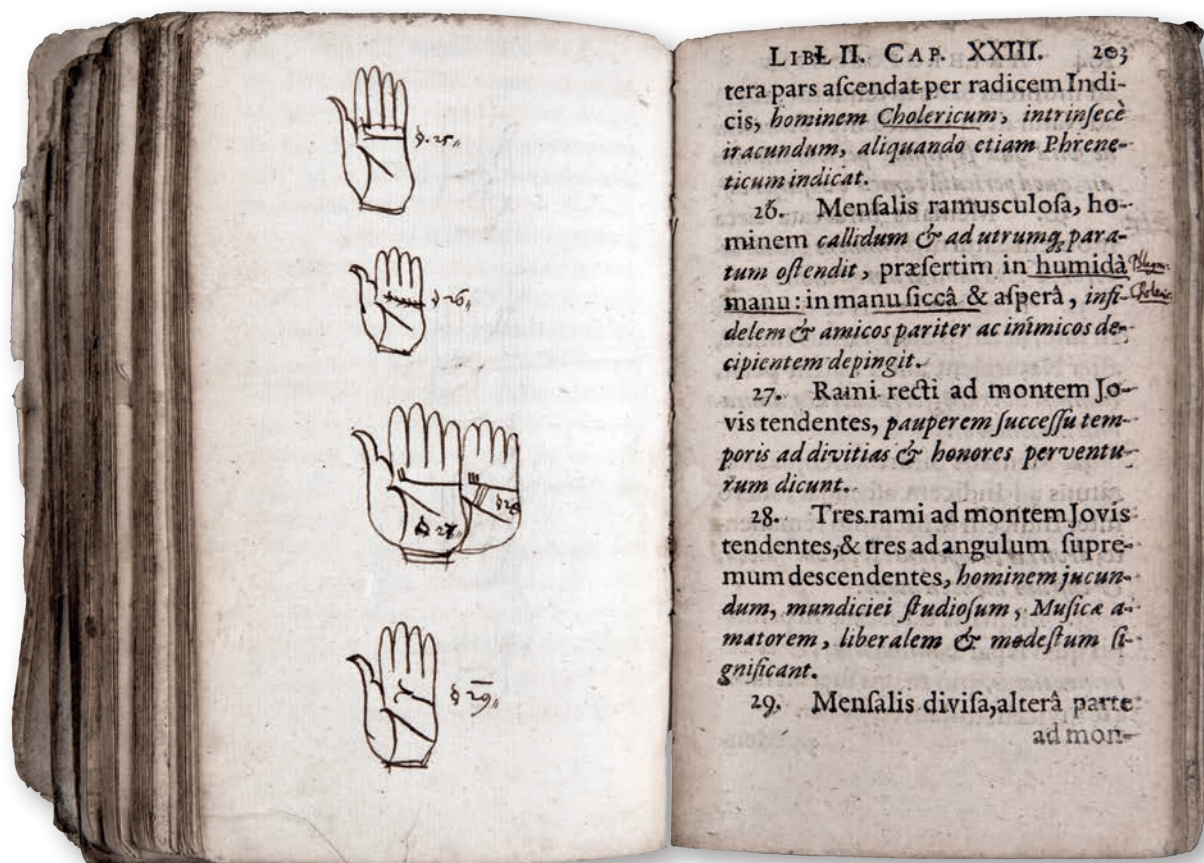 §. 25
§ 26
§ 27
§ 28
§ 29
LIBE II. CAP. XXIII. 203
tera pars aſcendat per radicem Indi-
cis, hominem Cholericum, intrinſecè
iracundum, aliquando etiam Phrene-
ticum indicat.
26. Menſalis ramuſculoſa, ho-
minem callidum & ad utrumq; para-
tum oſtendit, præſertim in humidâ
manu: in manu ſiccâ & aſperâ, infi-
delem & amicos pariter ac inimicos de-
cipientem depingit.
27. Rami recti ad montem Jo-
vis tendentes, pauperem ſucceſſu tem-
poris ad divitias & honores perventu-
rum dicunt.
28. Tres rami ad montem Jovis
tendentes, & tres ad angulum ſupre-
mum deſcendentes, hominem jucun-
dum, mundiciei ſtudioſum, Muſicæ a-
matorem, liberalem & modeſtum ſi-
gnificant.
29. Menſalis diviſa, alterâ parte
ad mon-